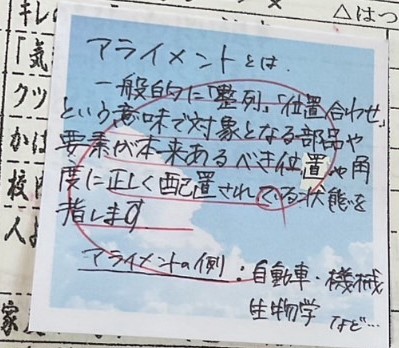 △はつ
キレ
「気
クツ
かは
校
人
家
アライメントとは、
一般的に「整列」「位置合わせ」
という意味で対象となる部品や
要素が本来あるべき位置や角
度に正しく配置されている状態を
指します
アライメントの例:自動車・機械
生物学 など…